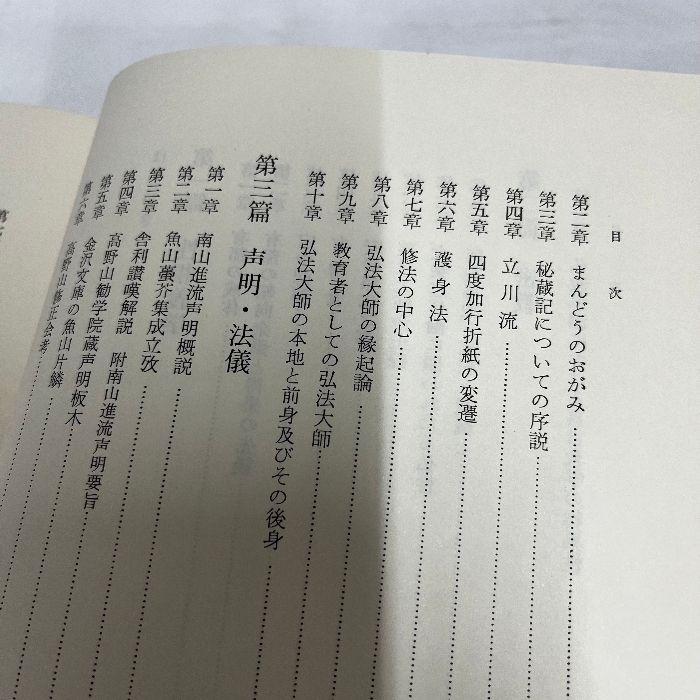 目次
第二章 まんどうのおがみ
第三章 秘蔵記についての序説
第四章 立川流
第五章 四度加行折紙の変遷
第六章 護身法
第七章 修法の中心
第八章 弘法大師の縁起論
第九章 教育者としての弘法大師
第十章 弘法大師の本地と前身及びその後身
第三篇 声明・法儀
第一章 南山進流声明概説
第二章 魚山蠆芥集成立攷
第三章 舎利讃嘆解説 附南山進流声明要旨
第四章 高野山勧学院蔵声明板木
第五章 金沢文庫の魚山片鱗
第六章 高野山修正会考